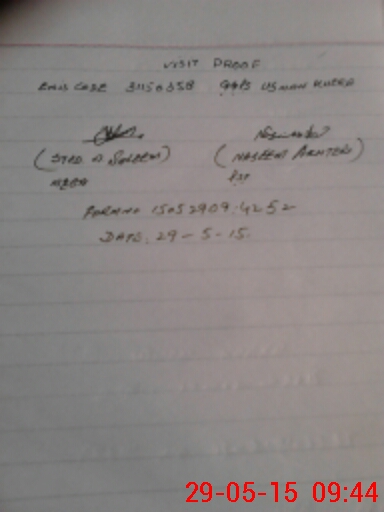 VISIT PROOF
EMIS CODE 31150358 GGPS USMAN KHERA
(SYED A SALEEM) (NASEEM AKHTER)
MEA PST
FORM NO 15052909:4252
DATE. 29-5-15.
29-05-15 09:44